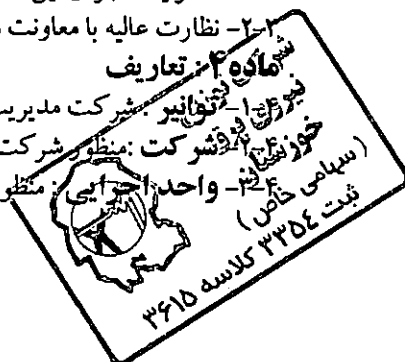 ۲-۳- نظارت عالیه با معاونت
ماده ۴: تعاریف
۴-۱- توانیر : شرکت مدیریت
۴-۲- شرکت :منظور شرکت
۴-۳- واحد اجرایی : منظور
نیروی برق
خوزستان
(سهامی خاص)
ثبت ۳۳۵۴ کلاسه ۳۶۱۵